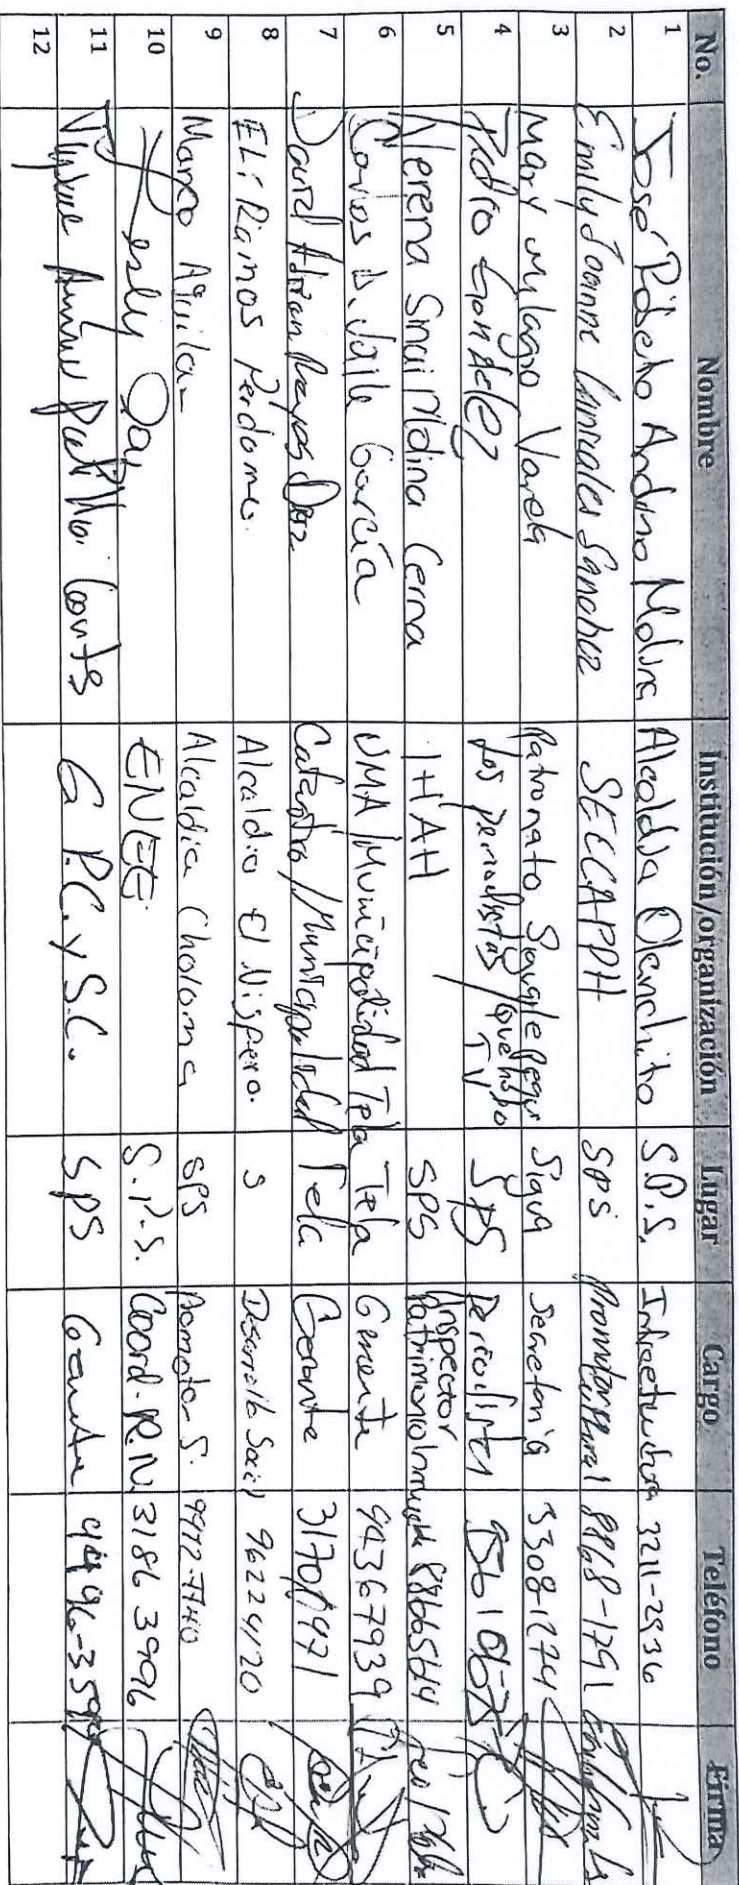 No. Nombre Institución/organización Lugar Cargo Teléfono Firma
1 José Roberto Andino Molina Alcaldía Olanchito S.P.S. 3211-2936
2 Emily Joanne Canales Sanchez SECCAPPH SPS Promotor Cultural 8868-1791
3 Mary Milagro Varela Patronato Sigua Secretaria 33081274
4 Pedro Gonzalez Los periodistas / que hubo TV SPS Periodista
5 Nerena Sinai Medina Cerna IHAH SPS Inspector Patrimonio
6 Carlos D. Valle García UMA/Municipalidad Tela Tela Gerente 94367939
7 David Adrian Reyes Diaz Catastro/Municipalidad Tela Gerante 31701471
8 ELí Ramos Perdomo. Alcaldia El Nispero. S Desarrollo Social 96224120
9 Marco Aguilar Alcaldia Choloma SPS Promotor S. 9972-7740
10 Lesly ENEE S.P.S. Coord. R.N. 3186 3996
11 G.P.C. y S.C. SPS Gerente
12